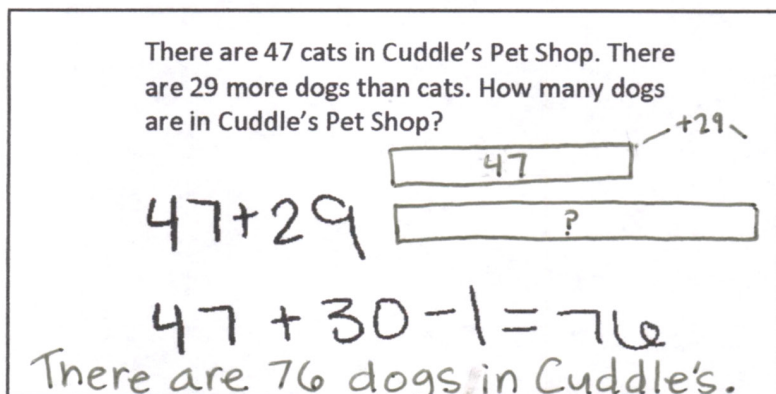 There are 47 cats in Cuddle's Pet Shop. There
are 29 more dogs than cats. How many dogs
are in Cuddle's Pet Shop?
+29
47
47+29
?
47 + 30 - 1 = 76
There are 76 dogs in Cuddle's.